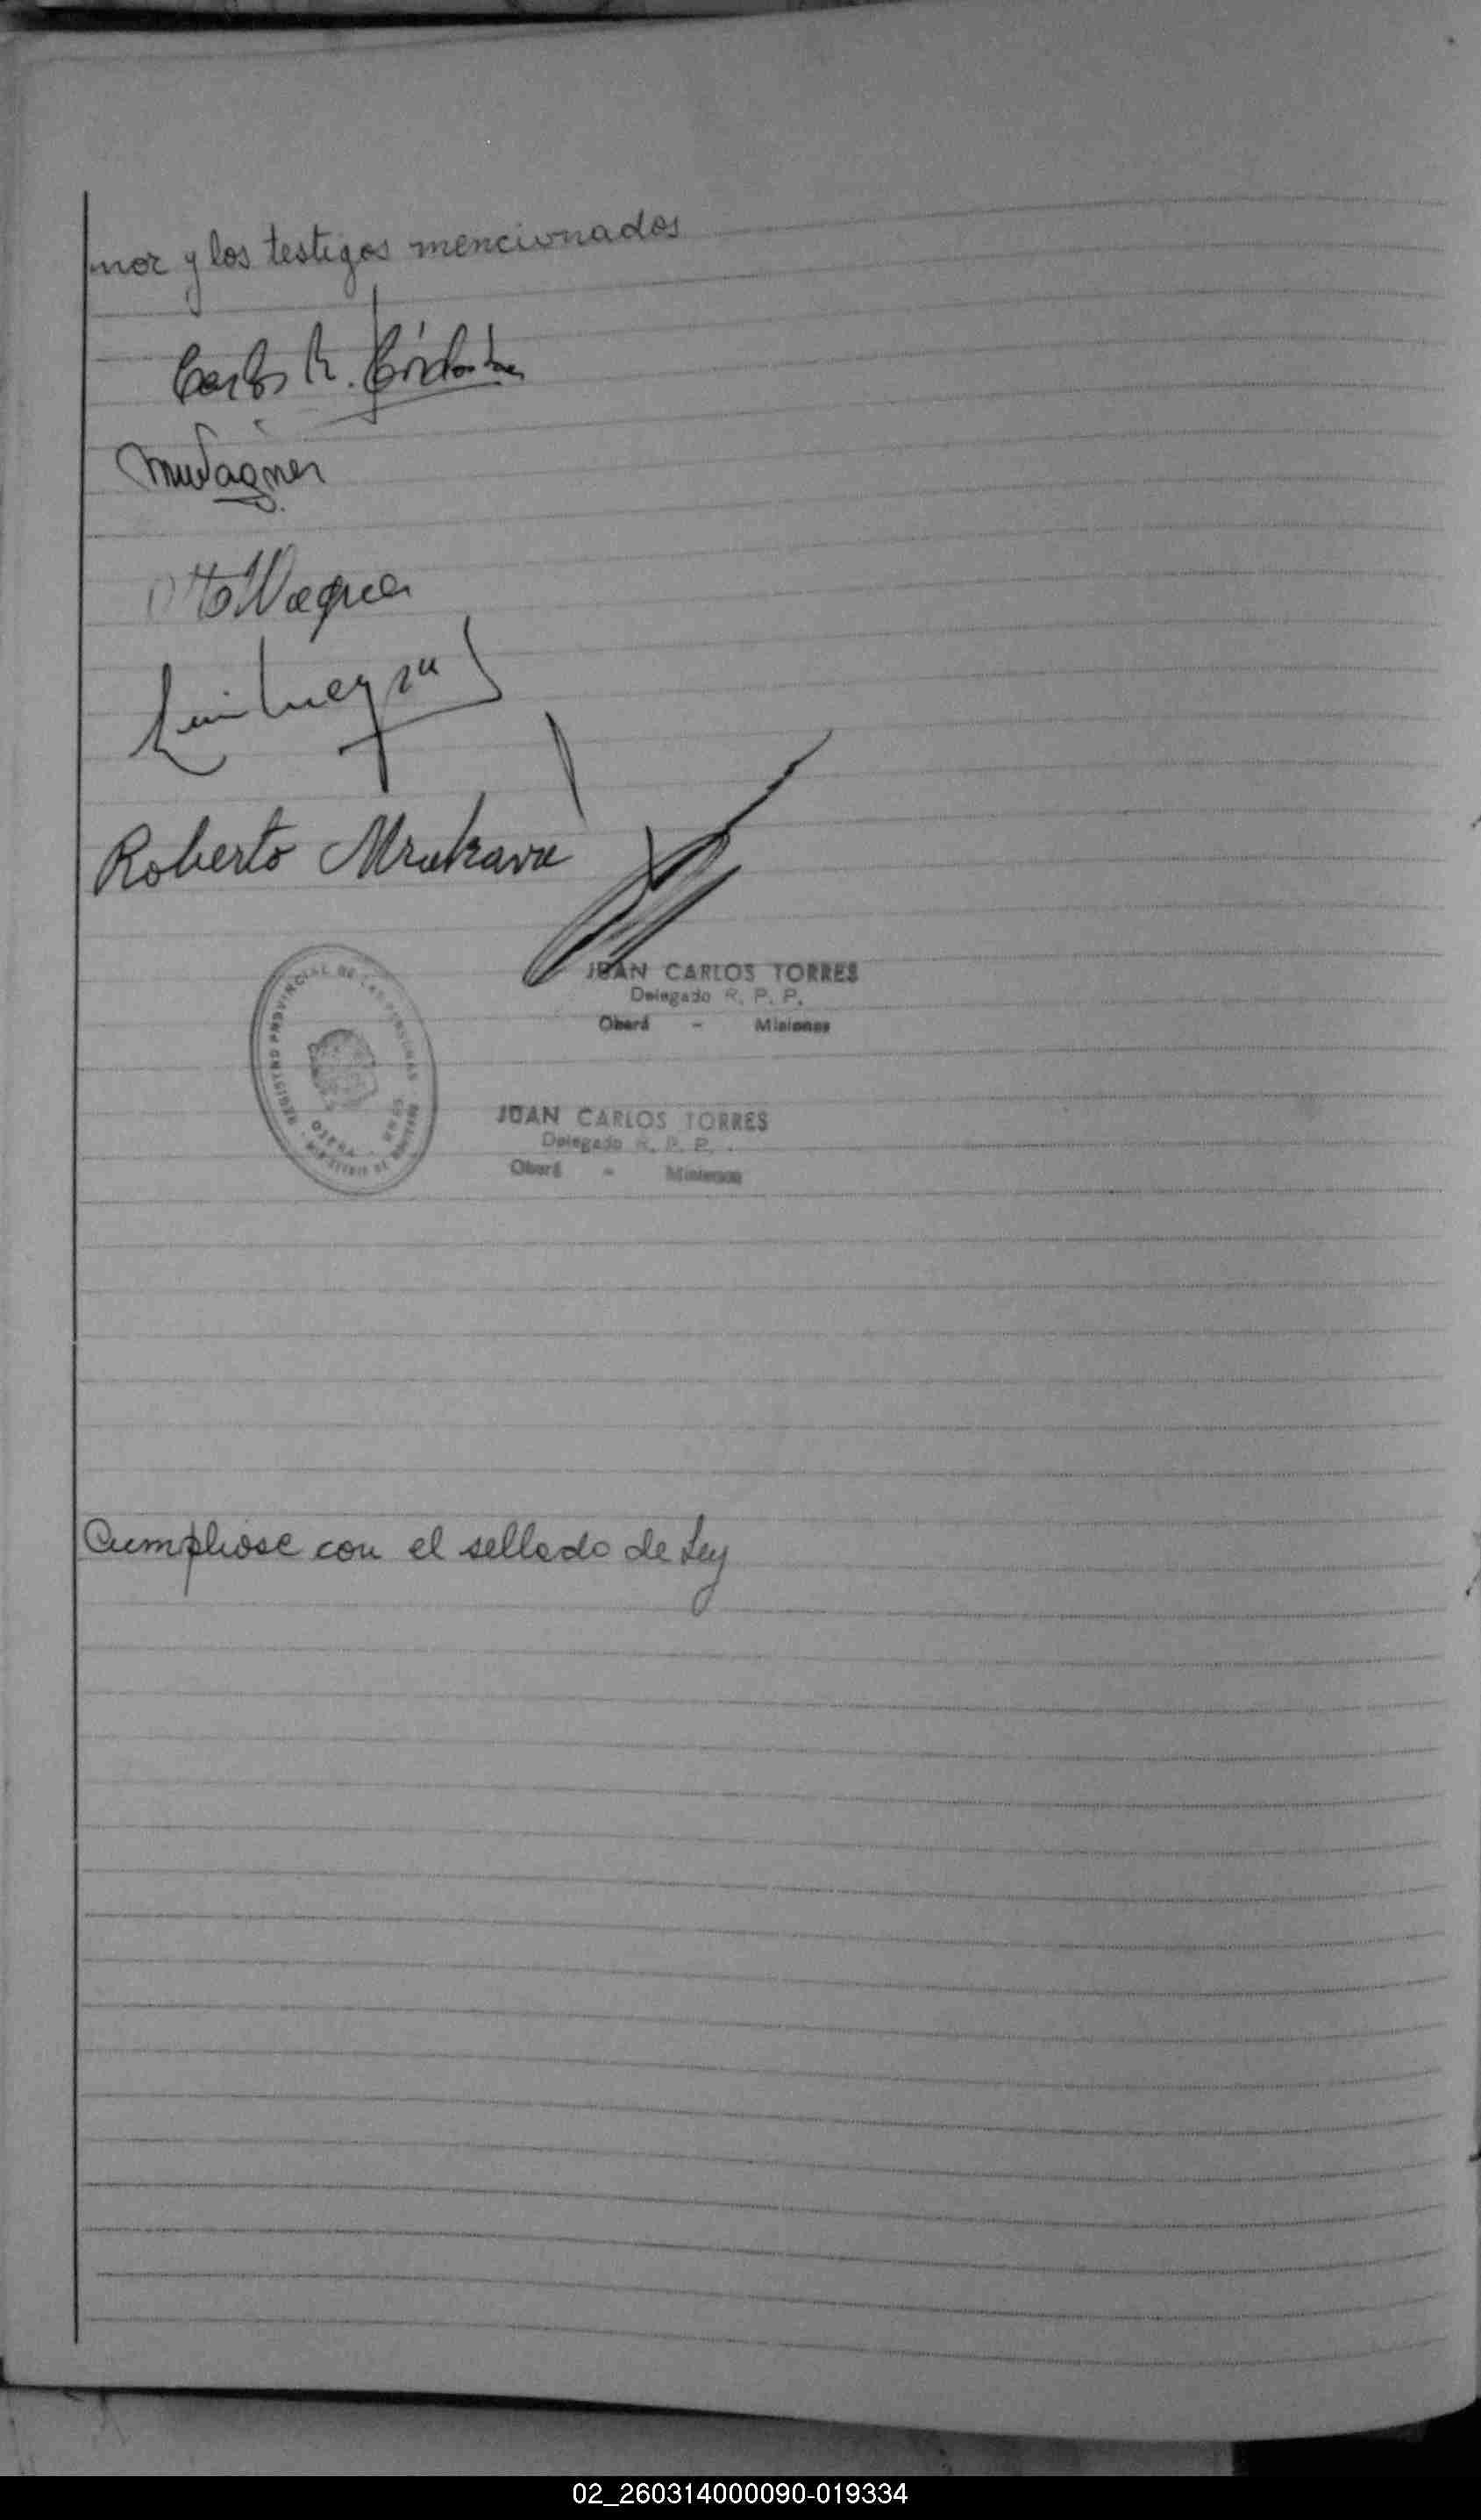 nor y los testigos mencionados
Carlos R. Córdoba
MWagner
Otto Wagner
Roberto
JUAN CARLOS TORRES
Delegado R. P. P.
Oberá - Misiones
REGISTRO PROVINCIAL DE LAS PERSONAS
OBERA
JUAN CARLOS TORRES
Delegado R. P. P.
Oberá - Misiones
Cumpliose con el sellado de Ley
02_260314000090-019334